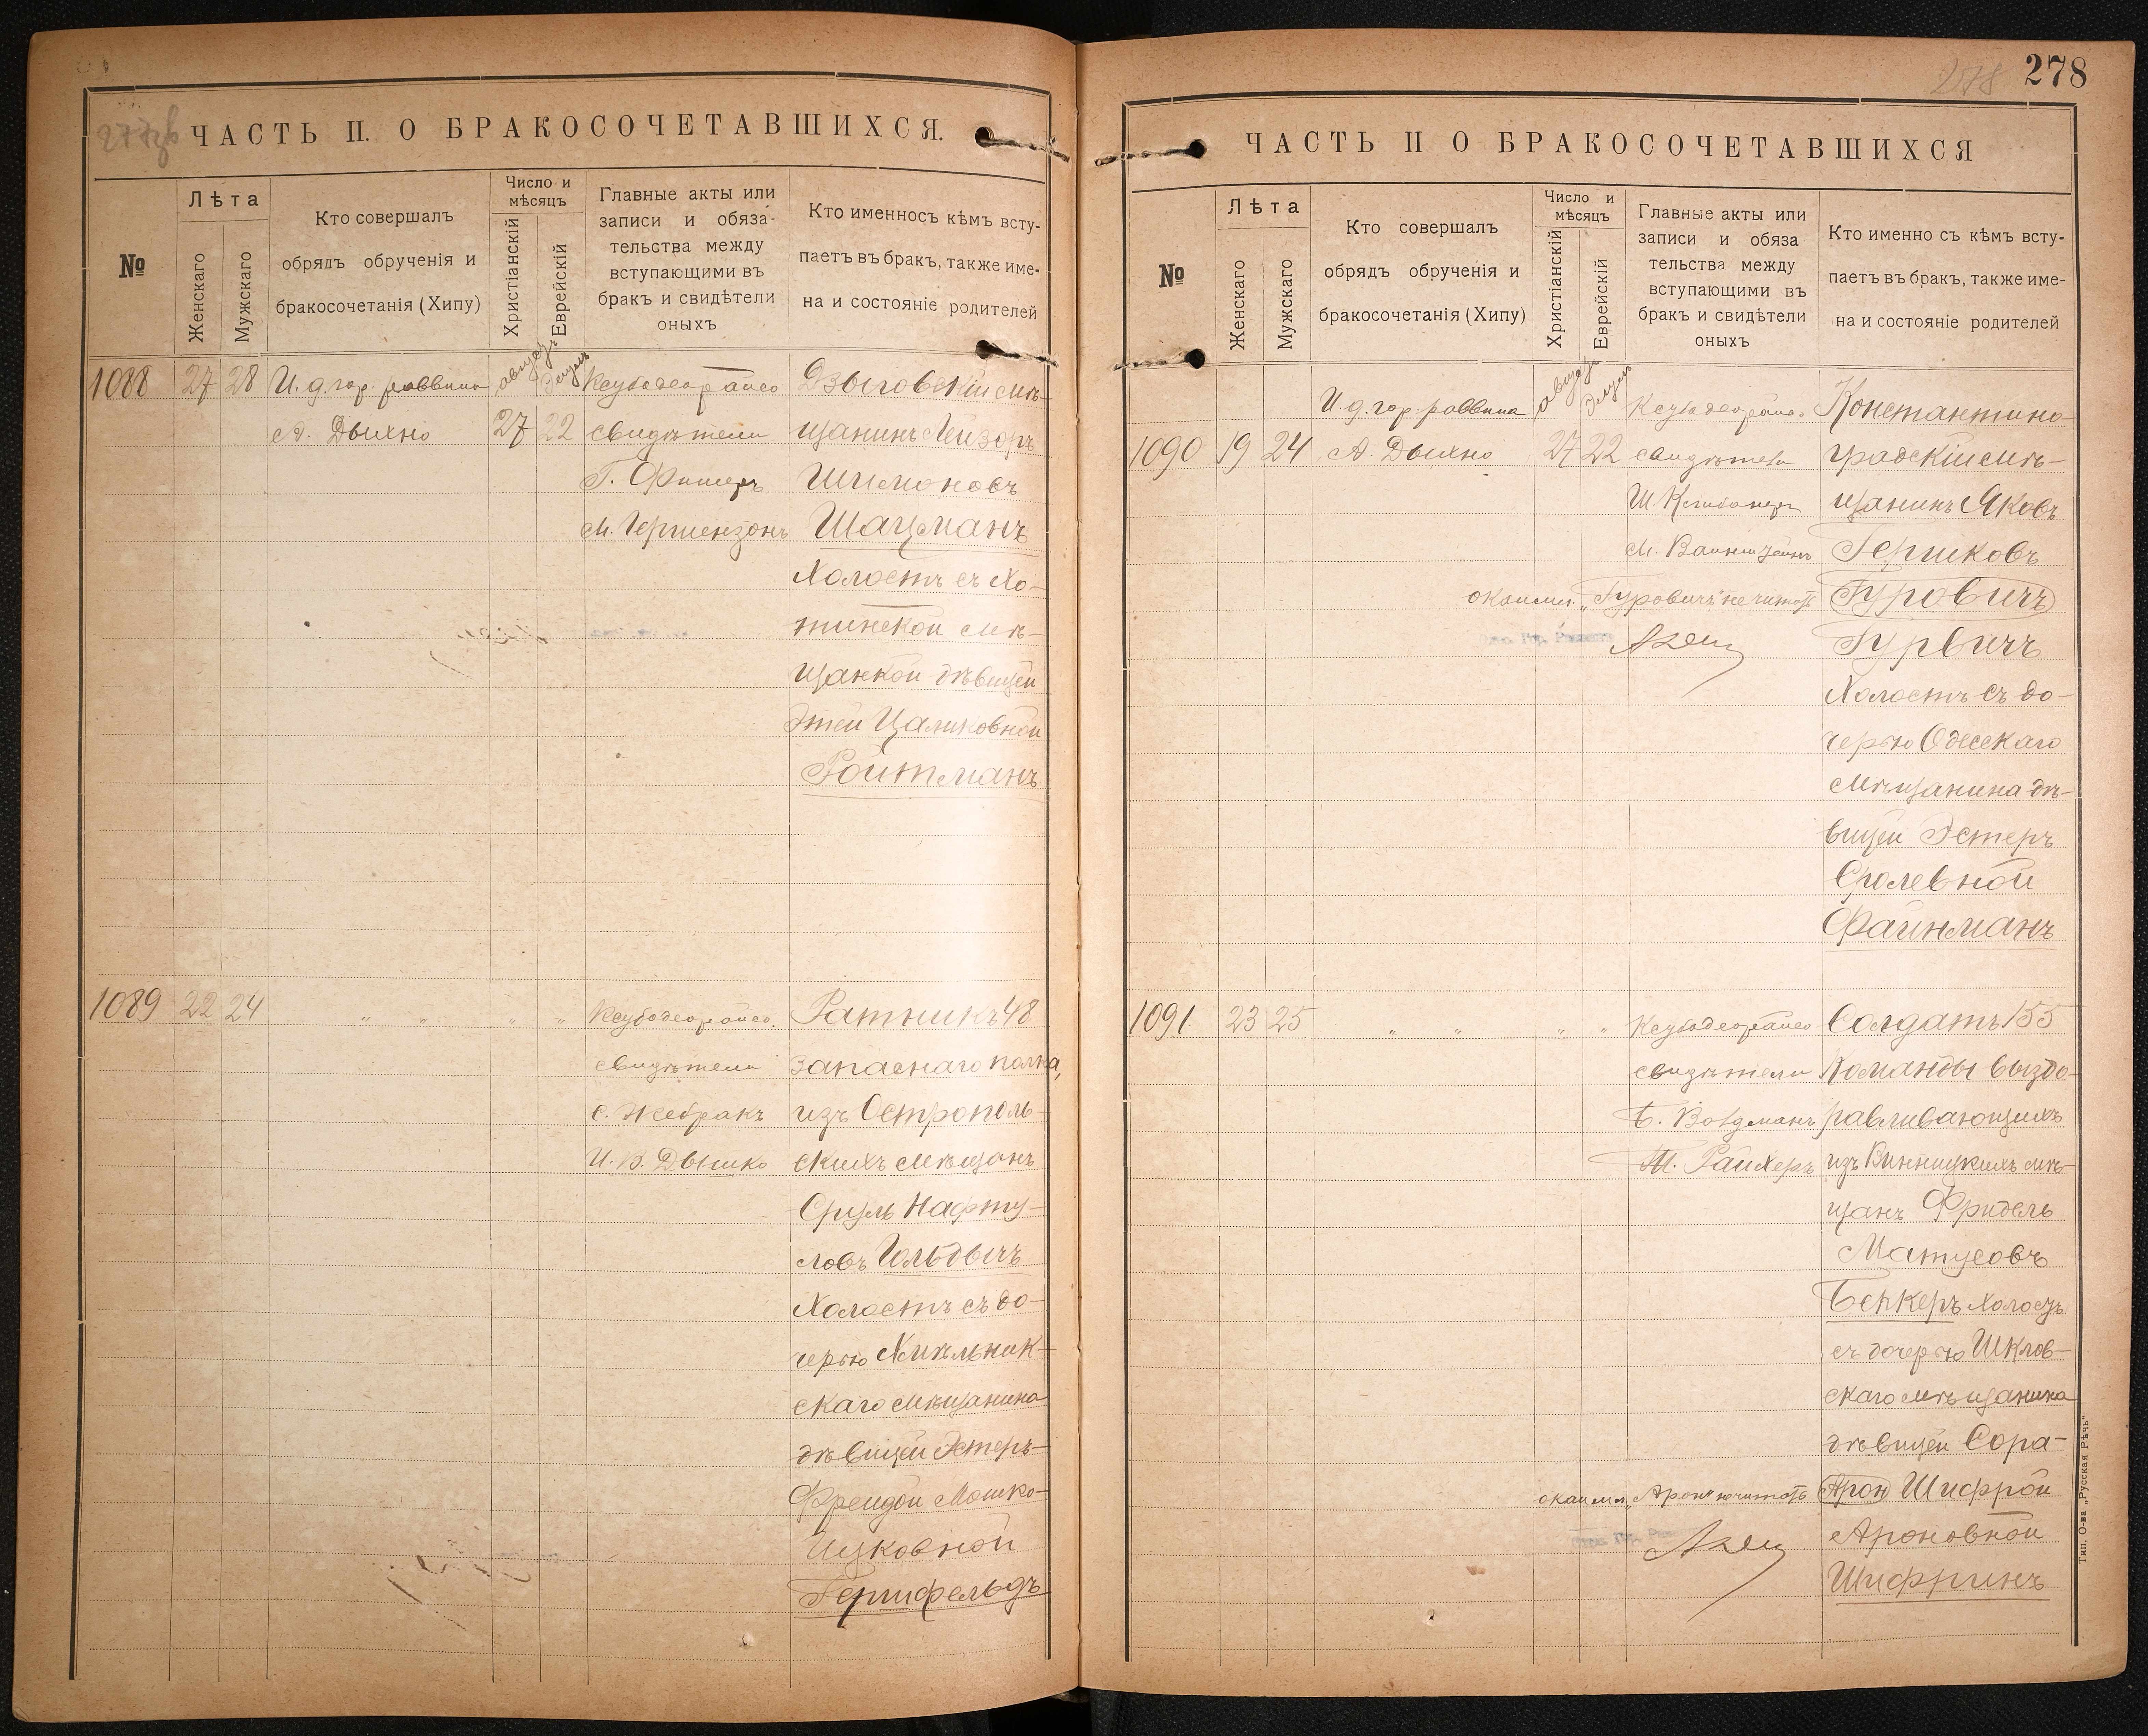 277об
ЧАСТЬ II. О БРАКОСОЧЕТАВШИХСЯ.
№
Лѣта
Женскаго
Мужскаго
Кто совершалъ
обрядъ обрученія и
бракосочетанія (Хипу)
Число и
мѣсяцъ
Христіанскій
Еврейскій
Главные акты или
записи и обяза-
тельства между
вступающими въ
бракъ и свидѣтели
оныхъ
Кто именносъ кѣмъ всту-
паетъ въ бракъ, также име-
на и состояніе родителей
1088 27 28 И. д. гор. раввина
А. Дыхно
августъ 27
Элулъ 22
Ксубодеорайсо
свидѣтели
Г. Фишеръ
М. Гершензонъ
Дзыговскій мѣ-
щанинъ Лейзоръ
Шимоновъ
Шацманъ
Холостъ съ Хо-
тинской мѣ-
щанкой дѣвицей
Этей Цаликовной
Ройтманъ
1089 22 24 „ „ „ „
Ксубодеорайсо
свидѣтели
С. Жебракъ
И. В. Дышко
Ратникъ 48
запаснаго полка,
изъ Острополь-
скихъ мѣщанъ
Сруль Нафту-
ловъ Гольдвихъ
Холостъ съ до-
черью Хмѣльник-
скаго мѣщанина
дѣвицей Эстеръ-
Фрейдой Мошко-
Ицковной
Герцфельдъ
278
278
ЧАСТЬ II О БРАКОСОЧЕТАВШИХСЯ
№
Лѣта
Женскаго
Мужскаго
Кто совершалъ
обрядъ обрученія и
бракосочетанія (Хипу)
Число и
мѣсяцъ
Христіанскій
Еврейскій
Главные акты или
записи и обяза
тельства между
вступающими въ
бракъ и свидѣтели
оныхъ
Кто именно съ кѣмъ всту-
паетъ въ бракъ, также име-
на и состояніе родителей
1090 19 24
И. д. гор. раввина
А. Дыхно
августъ 27
Элулъ 22
Ксубодеорайсо
свидѣтели
М. Вайнштейнъ
окаймл. „Гуровичъ" не читать
Константино
градскій мѣ-
щанинъ Яковъ
Гершковъ
Гуровичъ
Гурвичъ
Холостъ съ до-
черью Одесскаго
мѣщанина дѣ-
вицей Эстеръ
Сролевной
Файнманъ
1091 23 25 „ „ „ „
Ксубодеорайсо
свидѣтели
Б. Войдманъ
Т. Райхеръ
окаймл. „Арон" не читать
Солдатъ 155
Команды выздо-
равливающихъ
изъ Винницкихъ мѣ-
щанъ Фридель
Матусовъ
Беккеръ Холостъ
съ дочерью Шклов-
скаго мѣщанина
дѣвицей Сора-
Арон Шифрой
Ароновной
Шифринъ
Тип. О-ва „Русская Рѣчь"